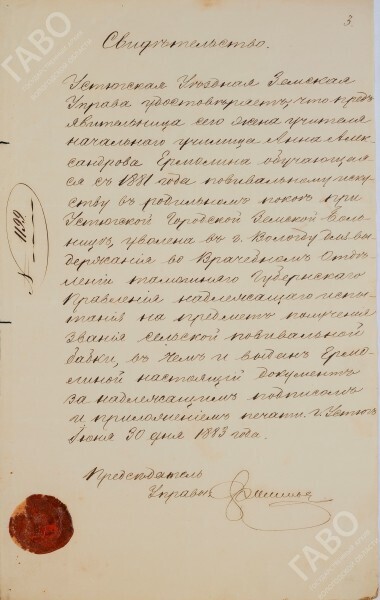 3
Свидѣтельство.
Устюгская Уѣздная Земская
Управа удостовѣряетъ, что предъ
явительница сего жена учителя
начальнаго училища Анна Алек
сандрова Ермолина обучающая
ся съ 1881 года повивальному иску
ству въ родильномъ покоѣ при
Устюгской Городской Земской боль
ницѣ, уволена въ г. Вологду для вы
держанія во Врачебномъ Отдѣ
леніи тамошняго Губернскаго
Правленія надлежащаго испы
танія на предметъ полученія
званія сельской повивальной
бабки, въ чемъ и выданъ Ермо
линой настоящій документъ
за надлежащимъ подписомъ
и приложеніемъ печати. г. Устюгъ
Іюня 30 дня 1883 года.
N 1139
Предсѣдатель
Управы
ГАВО
ГАВО
ГАВО
ГАВО